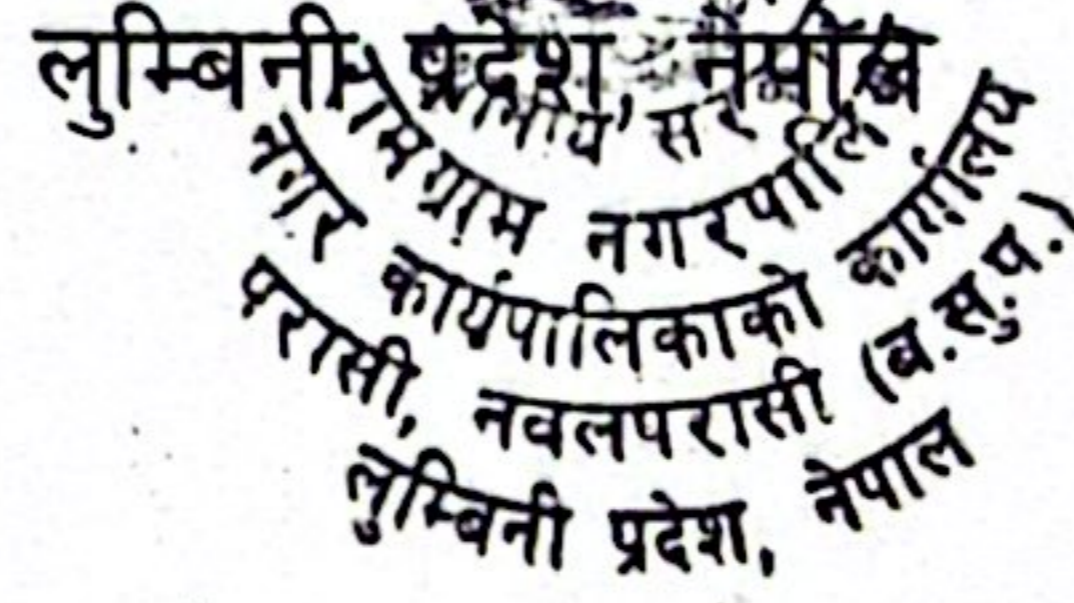 लुम्बिनी प्रदेश, नेपाल
रामग्राम नगरपालि
नगर कार्यपालिकाको कार्यालय
परासी, नवलपरासी (ब.सु.प.)
लुम्बिनी प्रदेश, नेपाल